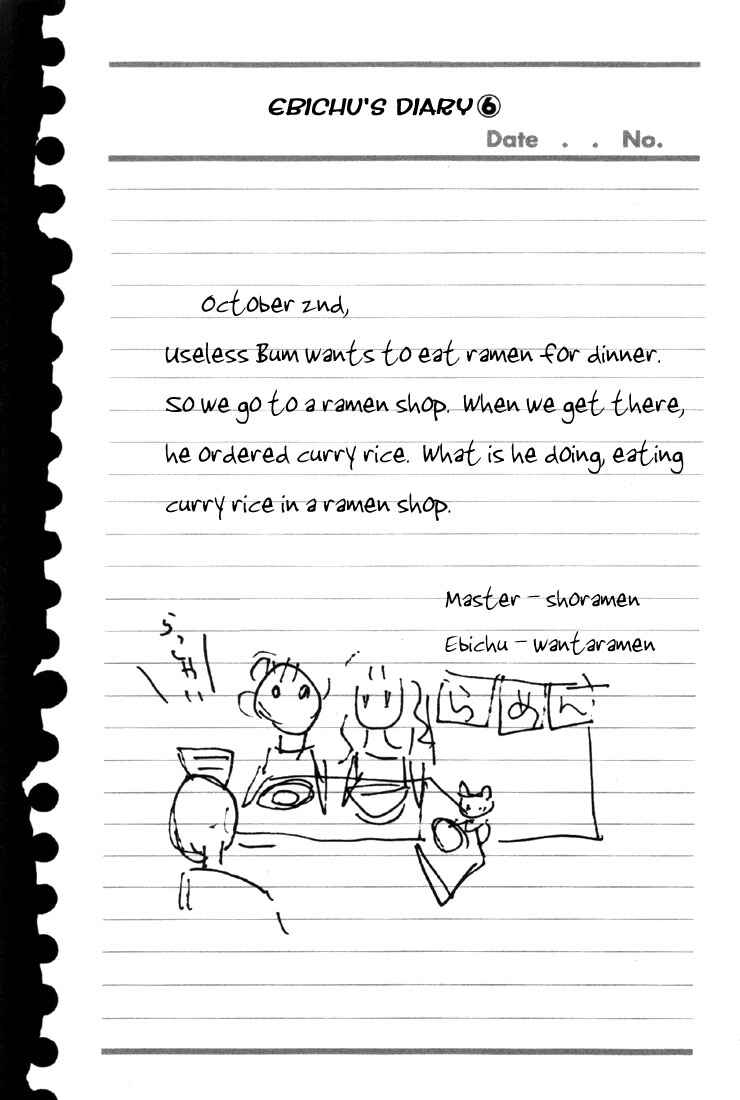 EBICHU'S DIARY⑥
Date . . No.
October 2nd,
Useless Bum wants to eat ramen for dinner.
So we go to a ramen shop. When we get there,
he ordered curry rice. What is he doing, eating
curry rice in a ramen shop.
Master - shoramen
Ebichu - wantaramen
らめん